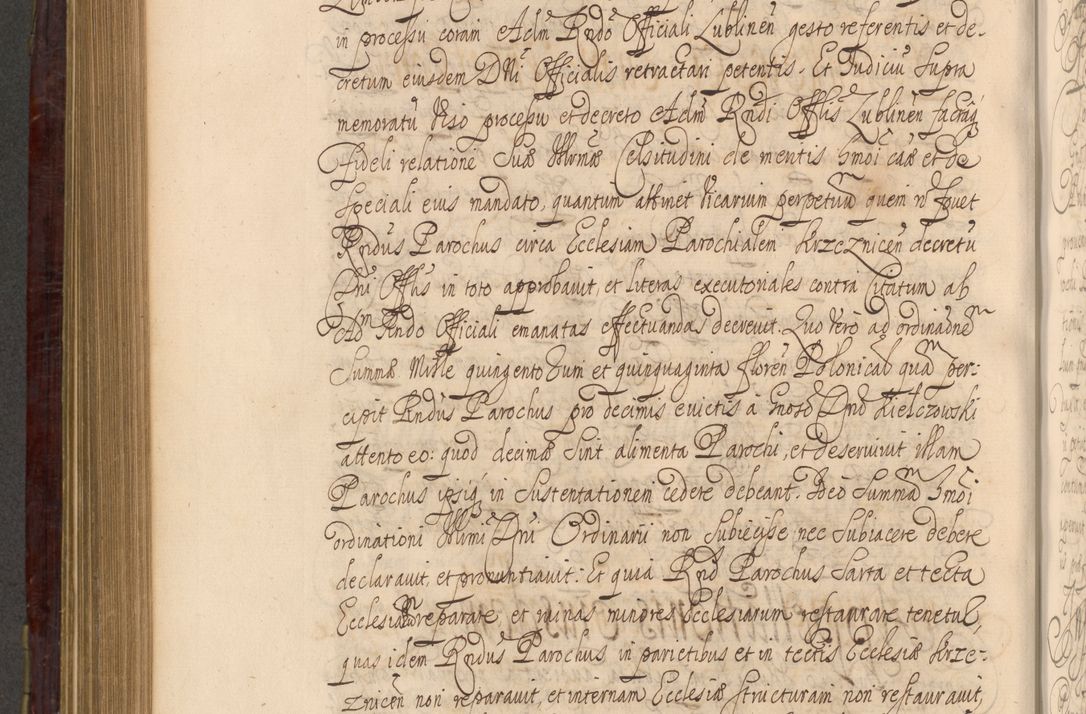 in processu coram Adm Rndo Officiali Lublinen gesto referentis et de-
cretum eiusdem Dni Officialis retractari petentis. Et Judiciū Supra
memoratū Viso processu et decreto Adm Rndi Offlis Lublinen factaq
Fideli relatione Suæ Illmæ Celsitudini de meritis hmoi cāæ et de
Speciali eius mandato, quantum attinet Vicarium perpetuū quem ñ fouet
Rndus Parochus circa Ecclesiam Parochialem Krzeznicen decretū
Dni Offlis in toto approbauit, et literas executoriales contra Citatum ab
Adm Rndo Officiali emanatas effectuandas decreuit. Quo Vero ad ordinaõnem
Summæ Mille quingentorum et quinquaginta floren Polonical quam per-
cipit Rndus Parochus pro decimis euictis á Gnoso Dno Kielczowski
attento eo: quod decimæ Sint alimenta Parochi, et deseruiuit illam
Parochus ipsiq in Sustentationem cedere debeant. Ideo Summam hmoi
ordinationi Illmi Dni Ordinarii non Subiecisse nec Subiacere debere
declarauit, et pronuntiauit: Et quia Rnd Parochus Sarta et tecta
Ecclesiæ reparare, et ruinas minores Ecclesiarum restaurare tenetul,
quas idem Rndus Parochus in parietibus et in tectis Ecclesiæ Krze-
znicen non reparauit, et internam Ecclesiæ Structuram non restaurauit,